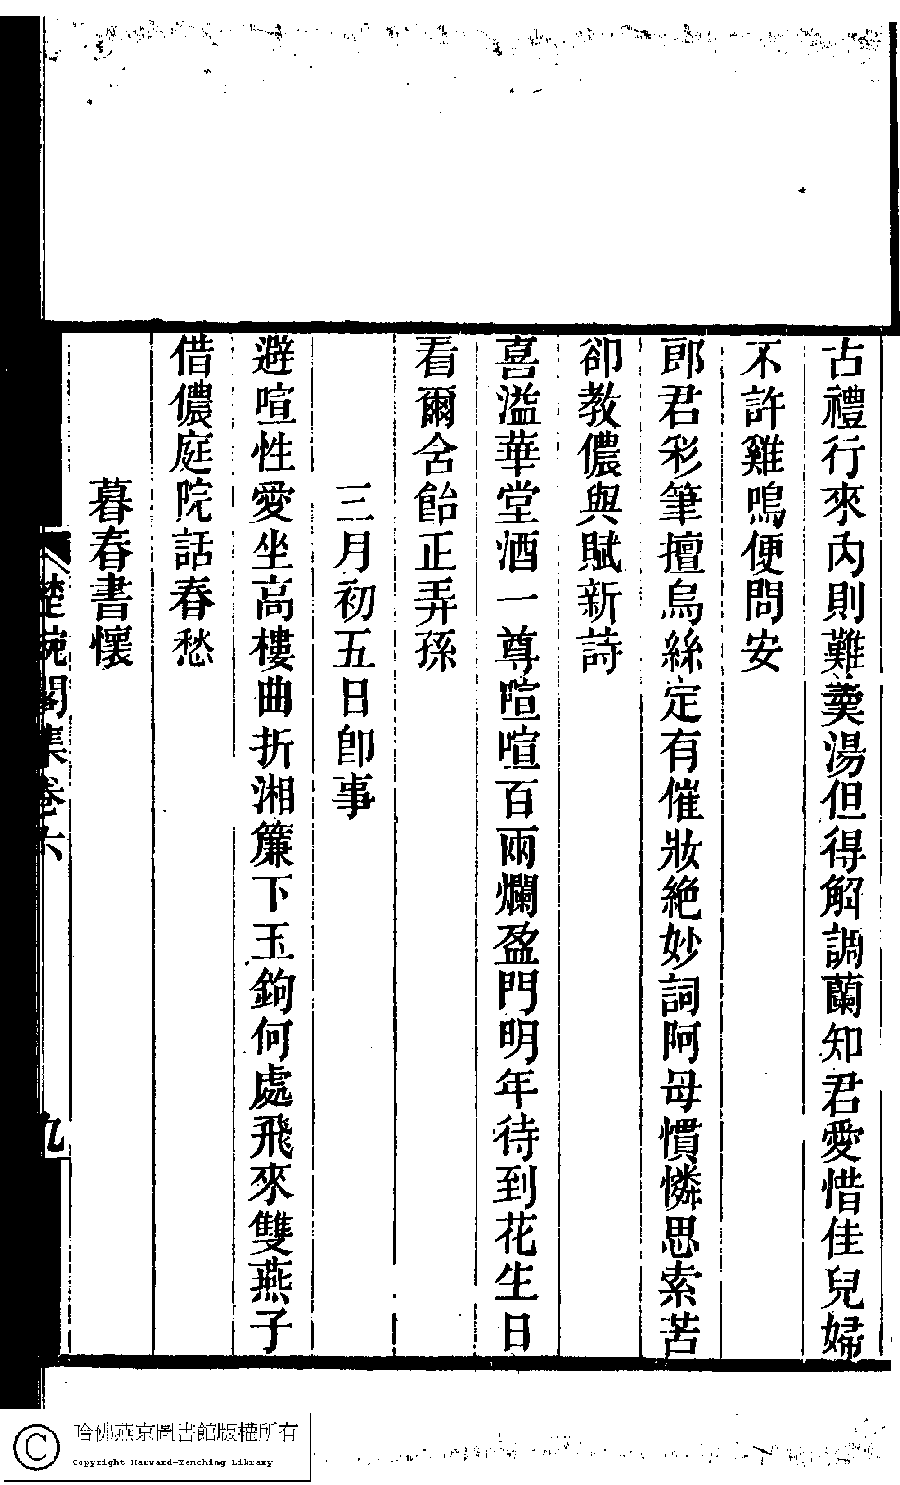 古禮行來內則難羹湯但得解調蘭知君愛惜佳兒婦
不許雞鳴便問安
郎君彩筆擅烏絲定有催妝絕妙詞阿母慣憐思索苦
卻教儂與賦新詩
喜溢華堂酒一尊喧喧百兩爛盈門明年待到花生日
看爾含飴正弄孫
三月初五日卽事
避喧性愛坐高樓曲折湘簾下玉鉤何處飛來雙燕子
借儂庭院話春愁
暮春書懷
楚畹閣集卷六
九
哈佛燕京圖書館版權所有
Copyright Harvard-Yenching Library